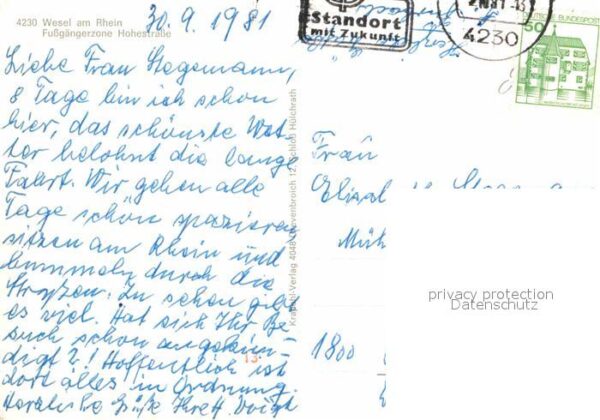 4230 Wesel am Rhein
Fußgängerzone Hohestraße
30.9.1981
Liebe Frau Stegemann,
8 Tage bin ich schon
hier, das schönste Wet-
ter belohnt die lange
Fahrt. Wir gehen alle
Tage schön spazieren
sitzen am Rhein und
bummeln durch die
Straßen. Zu sehen gibt
es viel. Hat sich Ihr Be-
such schon angekün-
digt?! Hoffentlich ist
dort alles in Ordnung.
Herzliche Grüße Ihre H. Voigt
Verlag 4048 Grevenbroich 12, Schloß Hülchrath
13
Standort
mit Zukunft
4230
DEUTSCHE BUNDESPOST
50
Frau
Müh
1800
privacy protection
Datenschutz